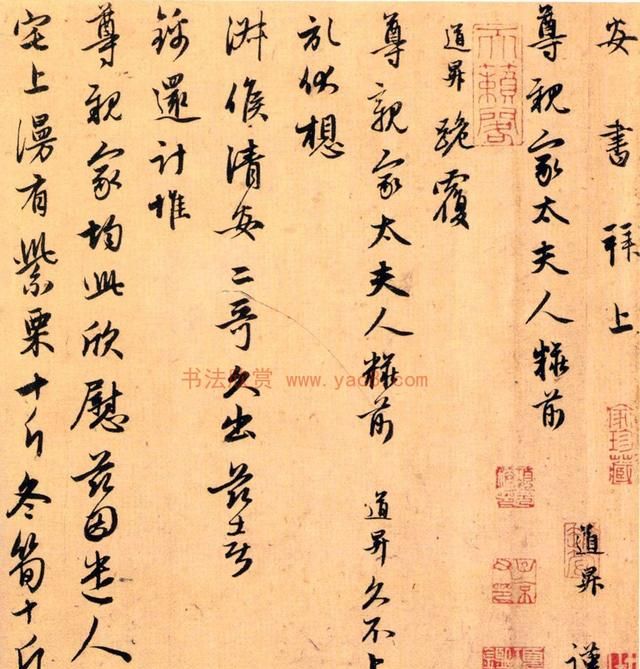 安書拜上
道昇 謹
尊親家太夫人粧前
道昇跪覆
尊親家太夫人粧前 道昇久不上
伏想
候清安二哥久出茲喜
錦還計惟
尊親家均此欣慰茲因遣人
宅上漫有紫栗十斤冬筍十斤
天籟閣
家珍藏
书法欣赏 www.yac8.com